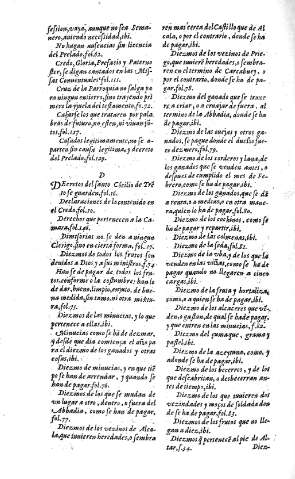 fession, vaya, aunque no sea Semanero, auiendo necessidad, ibi.
No hagan ausencias sin licencia
del Prelado, fol. 62.
Credo, Gloria, Prefacio y Paternoster, se digan cantados en las Missas Conuentuales. fol. 71.
Cruz de la Parroquia no salga para
ningun entierro, sino trayendo primero
Casarse los que trataren por palabras de futuro, no
fol. 127.
Casados legitimamente, no se aparten sin causa legitima, y decreto
del Prelado, fol. 129.
D
Decretos del santo Concilio de Trẽto se guarden, fol. 16.
Declaraciones de lo contenido en
el Credo, fol. 10.
Derechos que pertenecen a la Camara, fol. 46.
Dimissorias no se den a ningun
Clerigo, sino en cierta forma, fol. 19.
Diezmos de todos los frutos son
deuidos a Dios, y a sus ministros, f. 74
Han se de pagar de todos los frutos, conforme a la costumbre: han se
de dar, bueno, limpio, enxuto, de buena medida, sin tamo, ni otra mistura, fol. 75.
Diezmos de las minucias, y lo que
pertenece a ellas, ibi.
Minucias como se hã de dezmar,
y desde que dia comiença el año para el diezmo de los ganados y otras
cosas, ibi.
Diezmos de minucias, y en que tiẽpo se han de arrendar, y quando se
han de pagar, fol. 76.
Diezmos de los que se mudan de
vn lugar a otro, dentro, o fuera del
Abbadia, como se han de pagar,
fol. 77.
Diezmos de los vezinos de Alcala, que tuuieren heredades, o sembra
ren mas tierra del Castillo que de Alcala, o por el contrario, donde se ha
de pagar, ibi.
Diezmos de los vezinos de Priego, que tuuieren heredades, o sembraren en el termino de Carcabuey, o
por el contrario, donde se han de
pagar, fol. 78.
Diezmo del ganado que se traxere, a criar, o a
termino de la Abbadia, donde se
ha de pagar, ibi.
Diezmo de las ouejas y otros ganados, se
ño en del, fol. 79.
Diezmo de los corderos y lana, de
los ganados que se venden antes, o
despues de cumplido el mes de Febrero, como se ha de pagar, ibi.
Diezmo de los ganados, que se dã
a renta, o a medias, o en otra manera, quien le ha de pagar, fol. 80.
Diezmo de los cochinos, como se
ha de pagar y repartir, ibi.
Diezmo de las colmenas, ibi.
Diezmo de la seda, fol. 81.
Diezmo de la vba, y de los que la
venden en las viñas, como se ha de
pagar quando no llegaren a cinco
cargas, ibi.
Diezmo de la fruta y hortaliza,
como, o a quien se ha de pagar, ibi.
Diezmo de los alcaceres que vẽden, o gastan, de qual se ha de pagar,
y que entra en las minucias, f. 82.
Diezmo del çumaque, grama y
pastel, ibi.
Diezmo de la azeytuna, como, y
adonde se ha de pagar, ibi.
Diezmo de los bezerros, y de los
que descabritan, o desbecerran antes de tiempo, ibi.
Diezmos de los que tuuieren dos
vezindades y moços de soldada donde se ha de pagar, fol. 83.
Diezmos de los frutos que no llegan a diez, ibi.
Diezmos q̃ pertenecẽ al pie de Altar, f. 54. Diez-